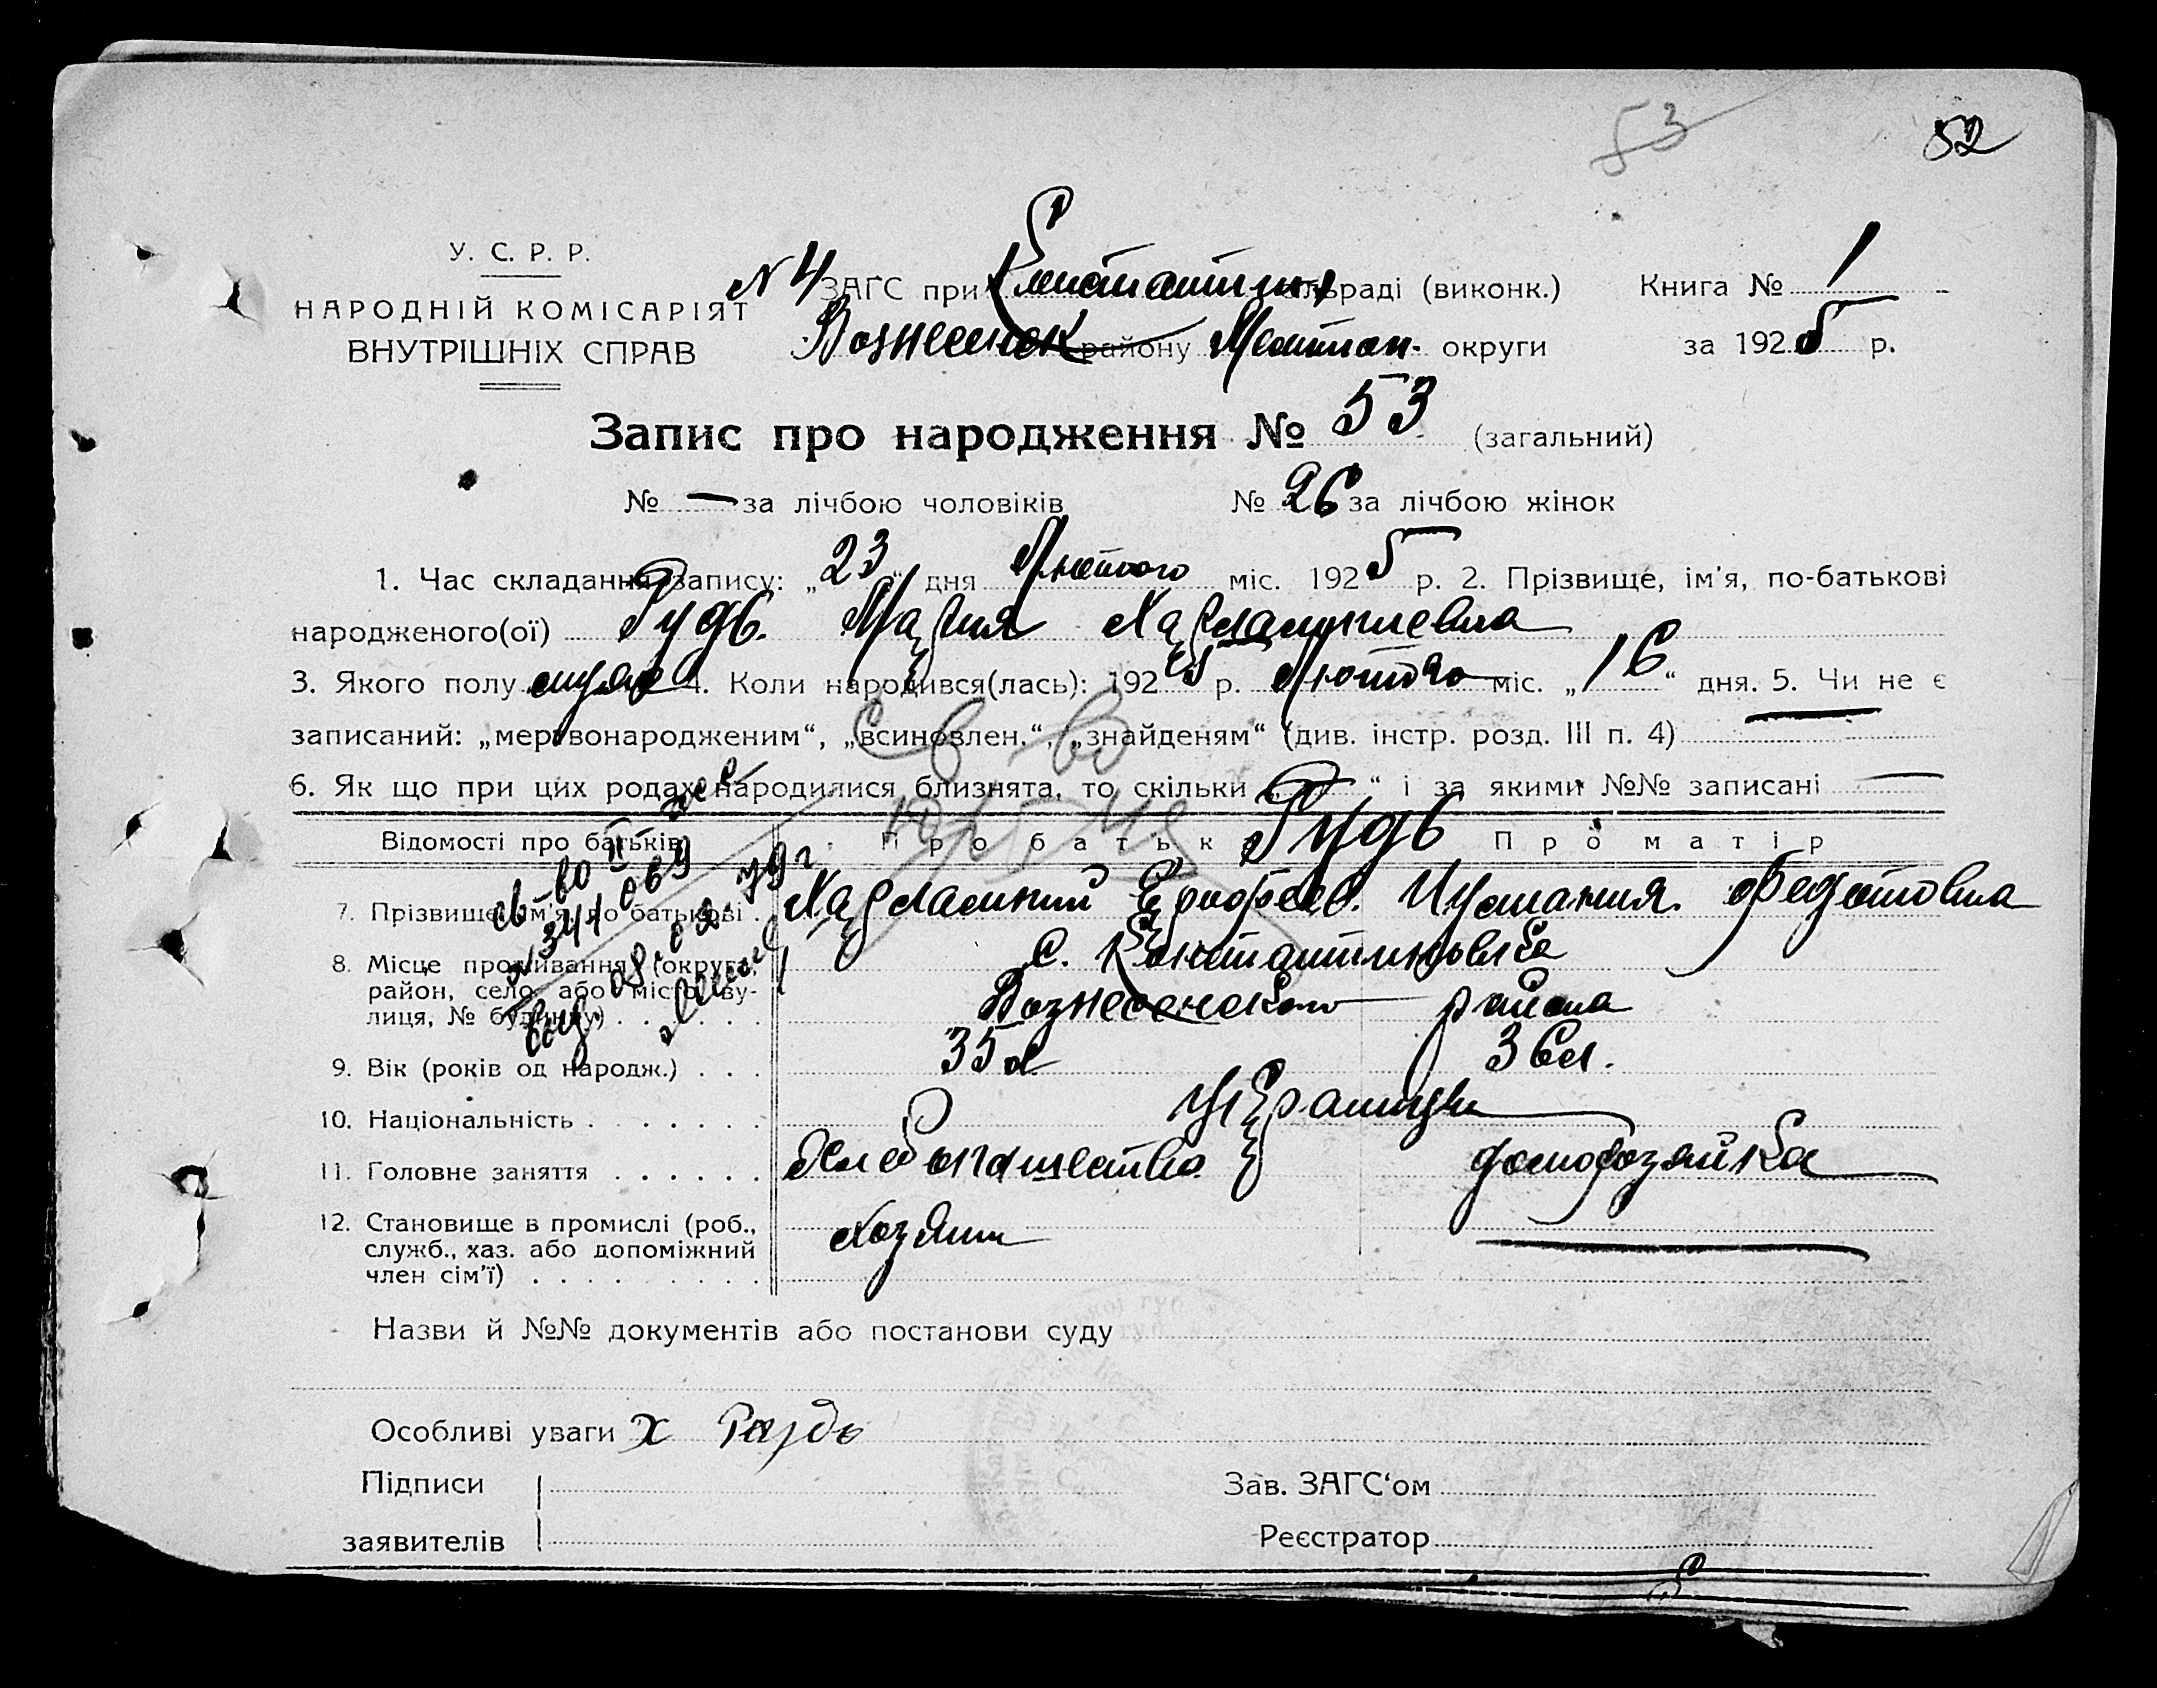 53 52
У. С. Р. Р.
НАРОДНІЙ КОМІСАРІЯТ
ВНУТРІШНІХ СПРАВ
N 4 ЗАГС при Константин сільраді (виконк.) Книга № 1
Вознесенск району Мелитоп. округи за 1925 р.
Запис про народження № 53 (загальний)
№ — за лічбою чоловіків № 26 за лічбою жінок
1. Час складання запису: „23“ дня Лютого міс. 1925 р. 2. Прізвище, ім'я, по-батькові
народженого(ої) Рудь. Мария Харлампиевна
3. Якого полу 4. Коли народився(лась): 1925 р. Лютого міс. „16“ дня. 5. Чи не є
записаний: „мертвонародженим“, „всиновлен.“, „знайденям“ (див. інстр. розд. III п. 4) —
6. Як що при цих родах народилися близнята, то скільки „ “ і за якими №№ записані —
св-во
Відомості про батьків Про батька Рудь Про матір
св-во II
№ 341069
выд. 08.02.79 г.
7. Прізвище, ім'я, по батькові . Харлампий Ерофеев. Мелания. Федотовна
8. Місце проживання (округа, с. Константиновка
район, село або місто, ву- Вознесенского района
лиця, № будинку) . . . . . .
9. Вік (років од народж.) . . . 35 л 36 л.
10. Національність . . . . . . . Украинцы
11. Головне заняття . . . . . . Хлебопашество домохозяйка
12. Становище в промислі (роб., Хозяин —
служб., хаз. або допоміжний
член сім'ї) . . . . . . . . .
Назви й №№ документів або постанови суду
Особливі уваги х Рудь
Підписи Зав. ЗАГС‘ом
заявителів Реєстратор